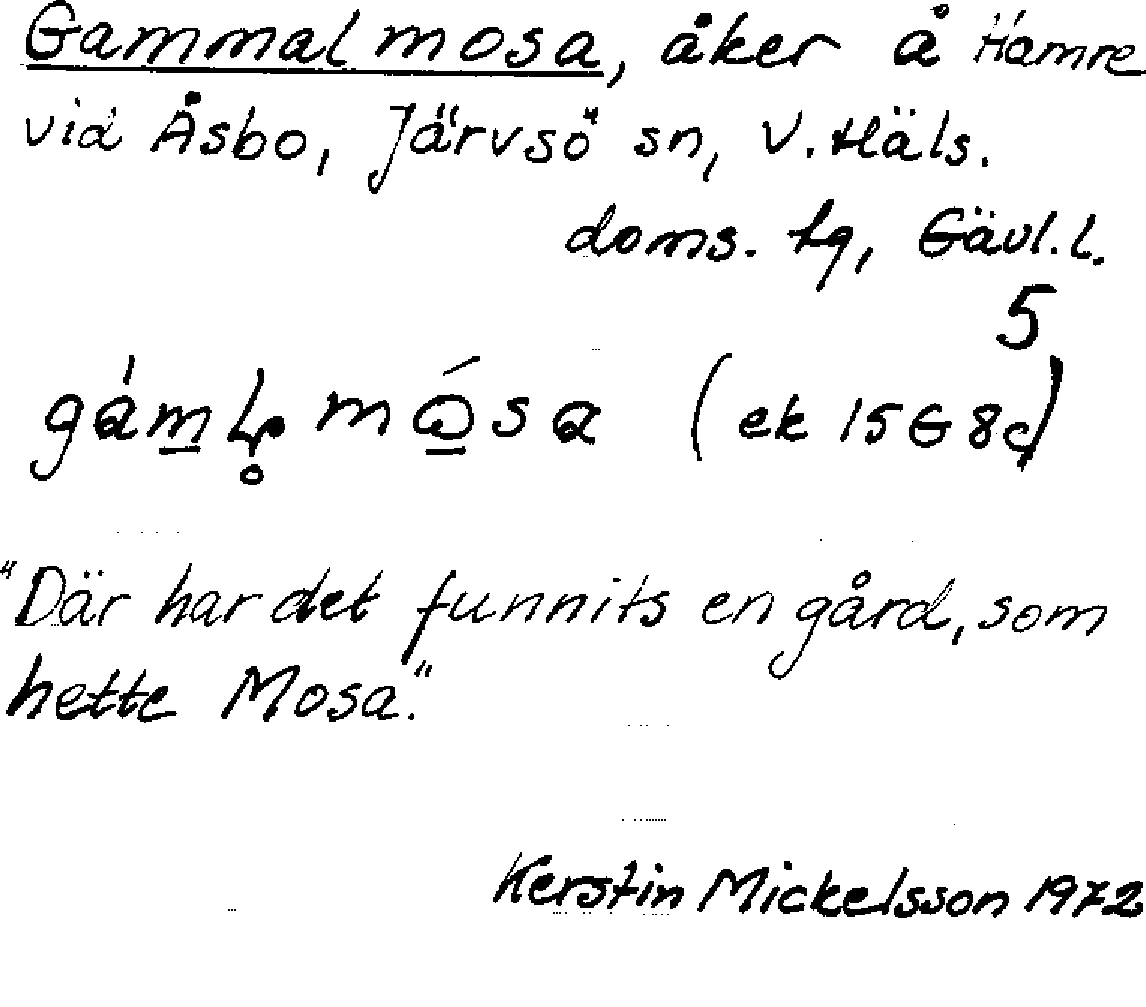 Gammalmosa, åker å Hamre
vid Åsbo, Järvsö sn, V. Häls.
doms. tg, Gävl.l.
5
(ek 15G 8c)
"Där har det funnits en gård, som
hette Mosa."
Kerstin Mickelsson 1972